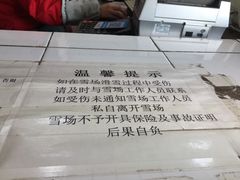 温馨提示
如在雪场滑雪过程中受伤
请及时与雪场工作人员联系
如受伤未通知雪场工作人员
私自离开雪场
雪场不予开具保险及事故证明
后果自负